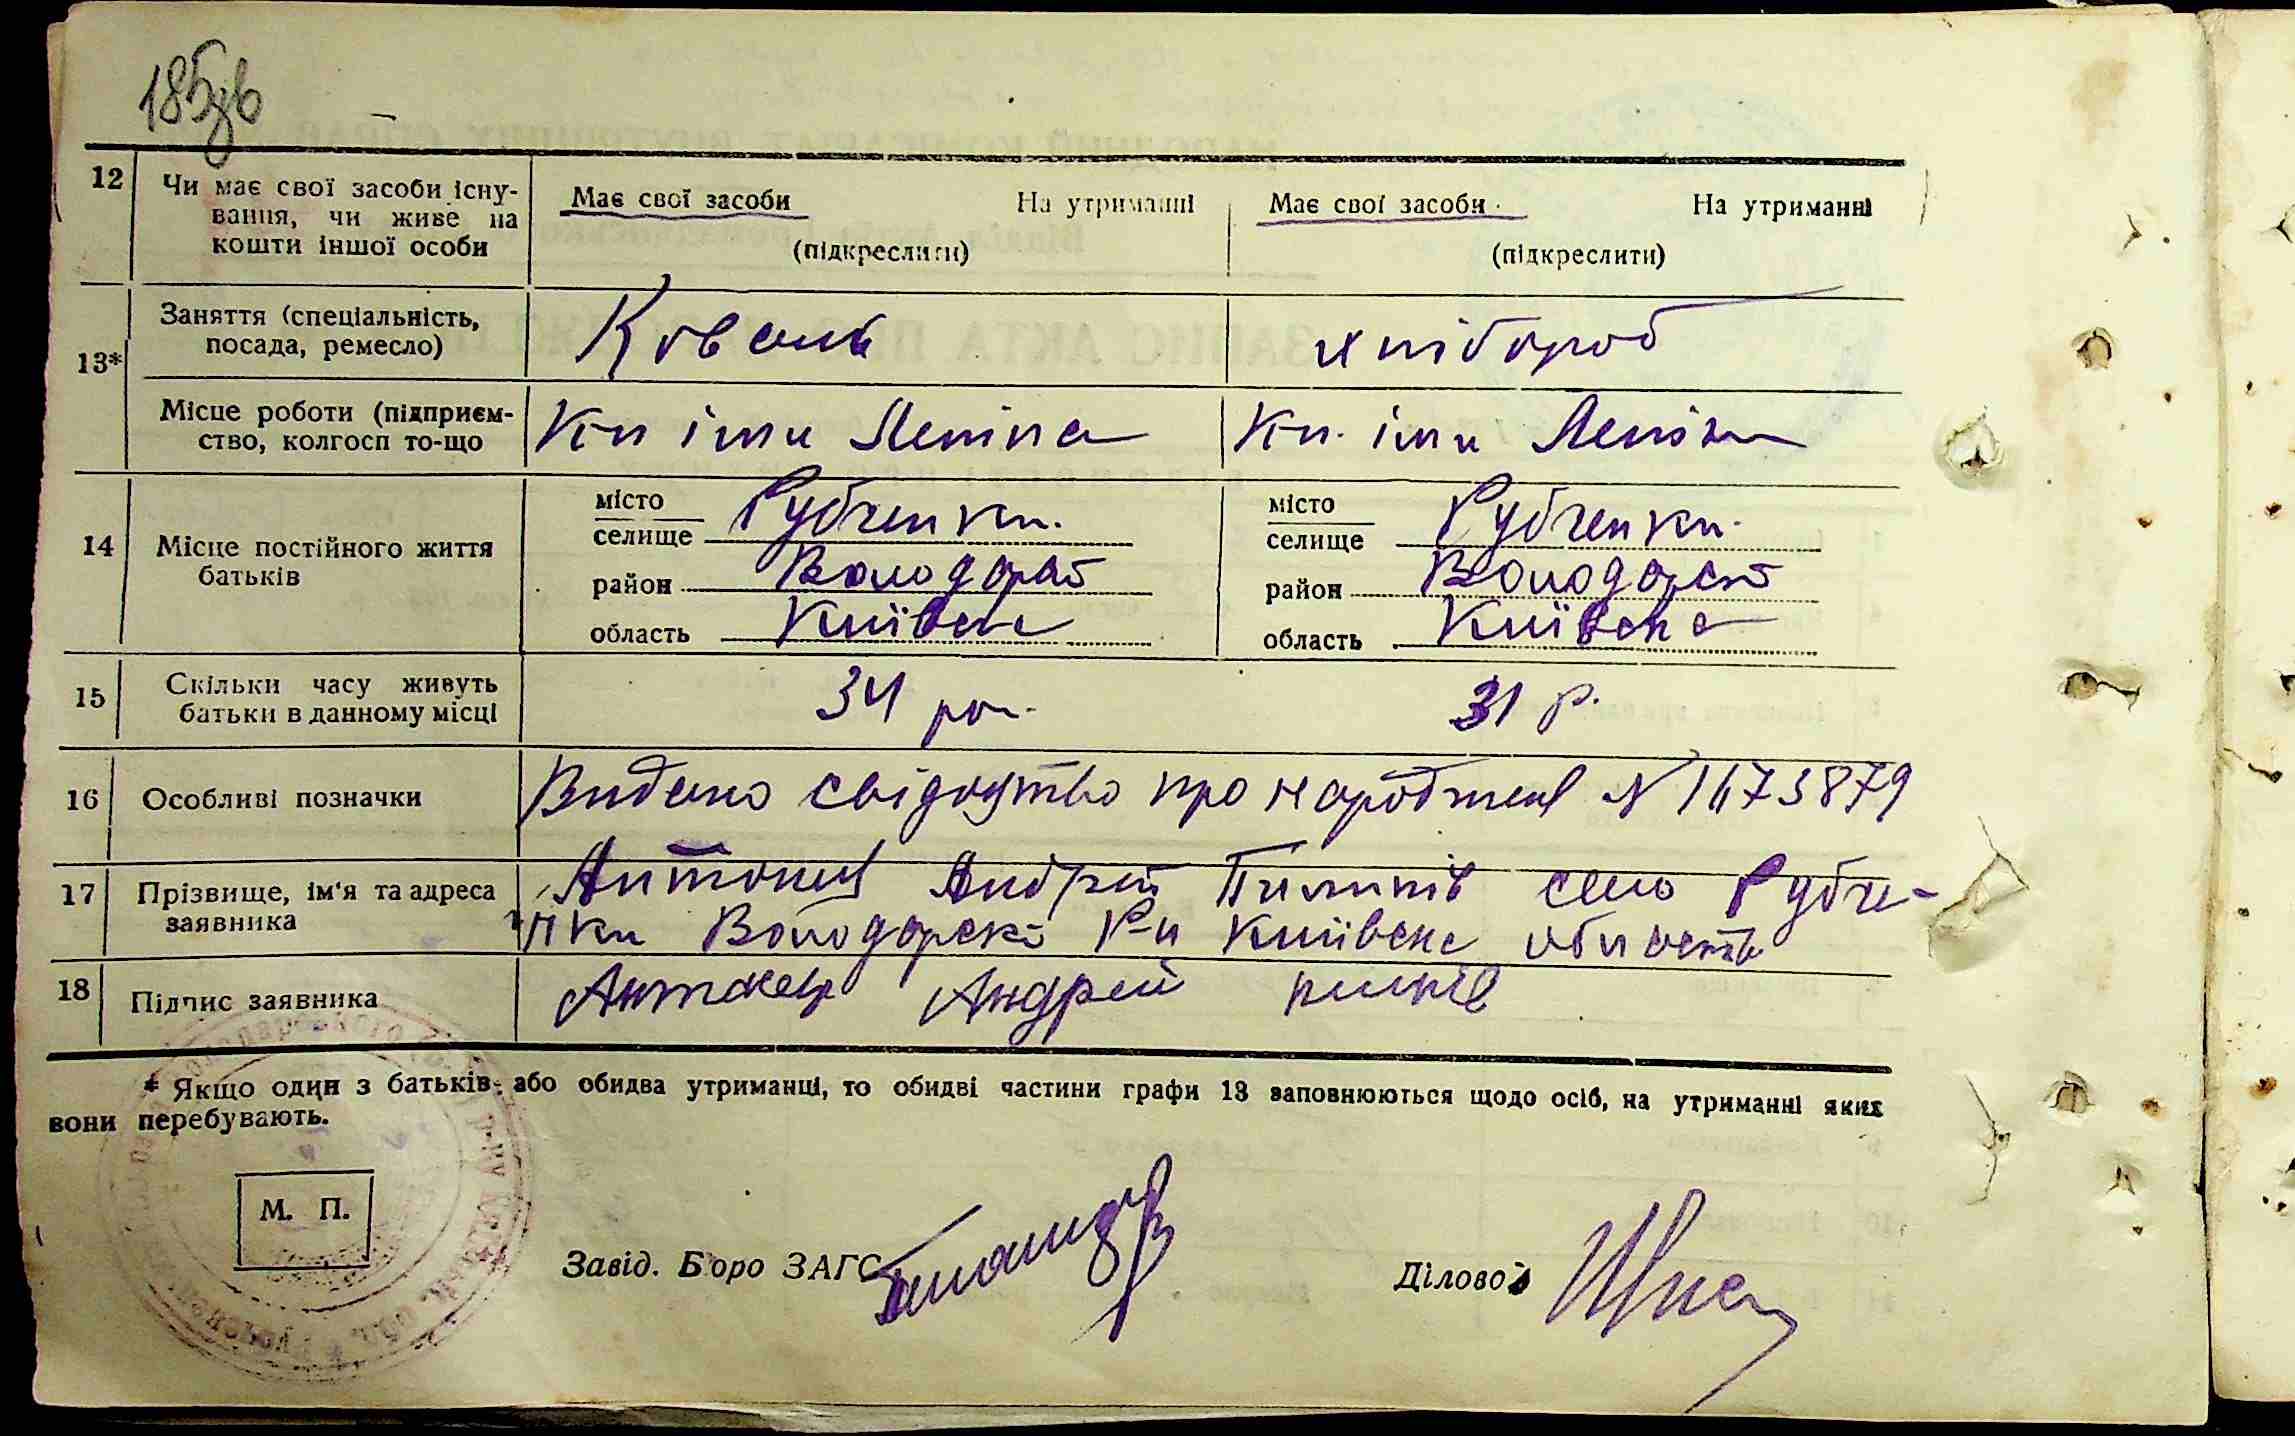 185зв
12 Чи має свої засоби існу-
вання, чи живе на
кошти іншої особи
Має свої засоби На утриманні
(підкреслити)
Має свої засоби На утриманні
(підкреслити)
13* Заняття (спеціальність,
посада, ремесло)
Коваль
хлібороб
Місце роботи (підприєм-
ство, колгосп то-що
Кп іми Леніна
Кп. іми Леніна
14 Місце постійного життя
батьків
місто
селище Рубченки.
район Володарсь
область Київська
місто
селище Рубченки.
район Володарськ
область Київська
15 Скільки часу живуть
батьки в данному місці
34 рок.
31 р.
16 Особливі позначки
Видано свідоцтво про народженя N 1673879
17 Прізвище, ім'я та адреса
заявника
Антонец Андрій Пилипів село Рубче-
нки Володарскі Р-н Київска область
18 Підпис заявника
Антонец Андрей пилипів
* Якщо один з батьків, або обидва утриманці, то обидві частини графи 13 заповнюються щодо осіб, на утриманні яких
вони перебувають.
М. П.
Завід. Бюро ЗАГС
Діловод